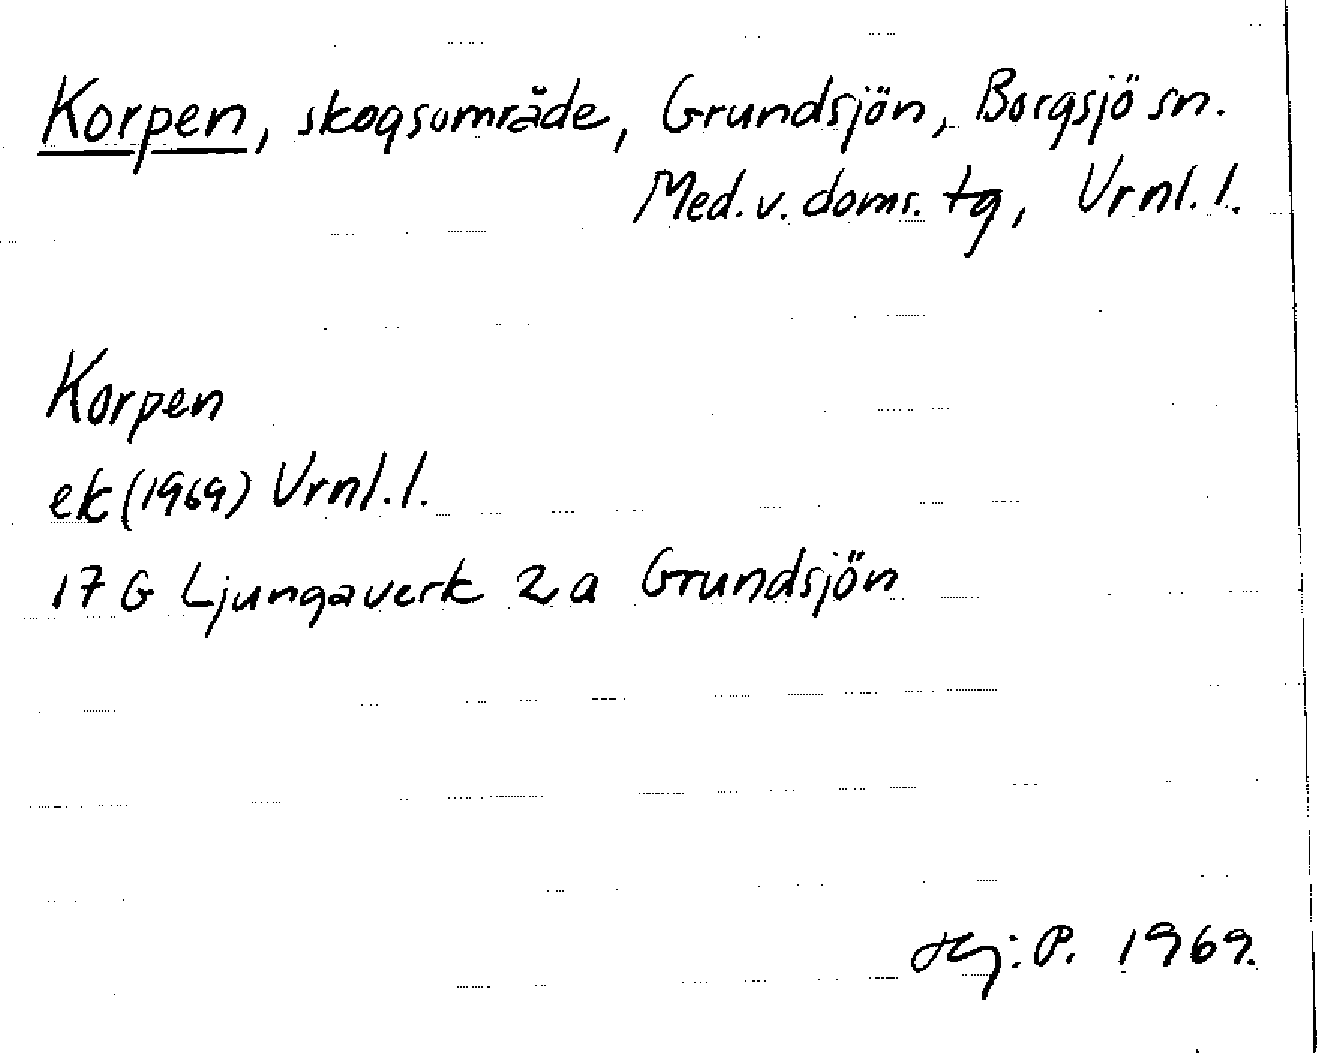 Korpen, skogsområde, Grundsjön, Borgsjö sn.
Med. v. doms. tg, Vrnl. l.
Korpen
ek (1969) Vrnl. l.
17 G Ljungaverk 2 a Grundsjön
Hj: P. 1969.